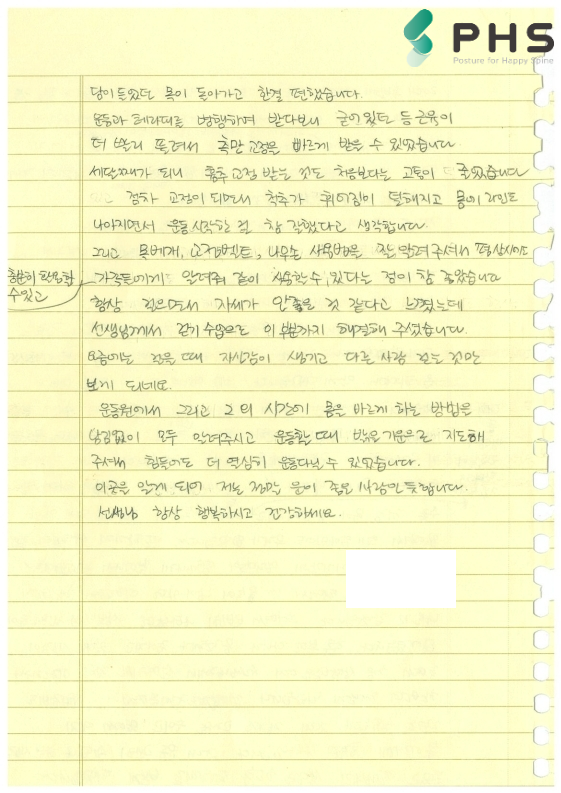 PHS
Posture for Happy Spine
당이 들었던 목이 돌아가고 한결 편했습니다.
운동과 테라피를 병행하여 받다보니 굳어있던 등근육이
더 빨리 풀려서 측만교정을 빠르게 받을 수 있었습니다.
세달째가 되니 흉추교정 받는 것도 처음보다는 고통이 줄었습니다
점차 교정이 되면서 척추가 휘어짐이 덜해지고 몸이 라인도
나아지면서 운동시작한 걸 참 잘했다고 생각합니다.
그리고 목베개, 교정벨트, 나무손 사용법을 잘 알려주셔서 평상시에도
충분히 활용할
수있고
가족들에게 알려줘 같이 사용할 수 있다는 점이 참 좋았습니다
항상 걸으면서 자세가 안좋은 것 같다고 느꼈는데
선생님께서 걷기 수업으로 이 부분까지 해결해 주셨습니다.
요즘에는 걸을 때 자신감이 생기고 다른 사람 걷는 것만
보게 되네요.
운동원에서 그리고 그 외 시간에 몸을 바르게 하는 방법을
남김없이 모두 알려주시고 운동할 때 밝은 기운으로 지도해
주셔서 힘들어도 더 열심히 운동다닐 수 있었습니다.
이곳을 알게 되어 저는 정말 운이 좋은 사람인 듯합니다.
선생님 항상 행복하시고 건강하세요.